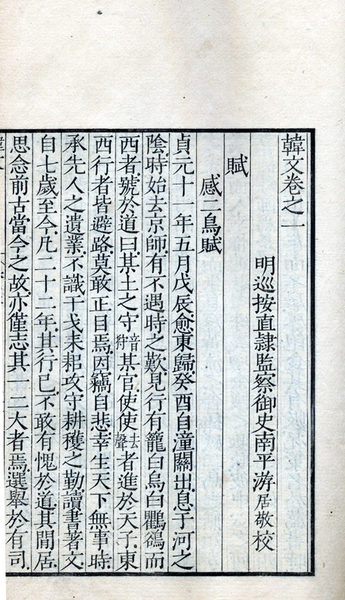 韓文卷之一
明巡按直隷監察御史南平游居敬校
賦
感二鳥賦
貞元十一年五月戊辰愈東歸癸酉自潼關出息于河之
陰時始去京師有不遇時之歎見行有籠白烏白鸜鵒而
西者號於道曰某土之守音狩某官使使去聲者進於天子東
西行者皆避路莫敢正目焉因竊自悲幸生天下無事時
承先人之遺業不識干戈耒耜攻守耕穫之勤讀書著文
自七歲至今凡二十二年其行已不敢有愧於道其閒居
思念前古當今之故亦僅志其一二大者焉選舉於有司